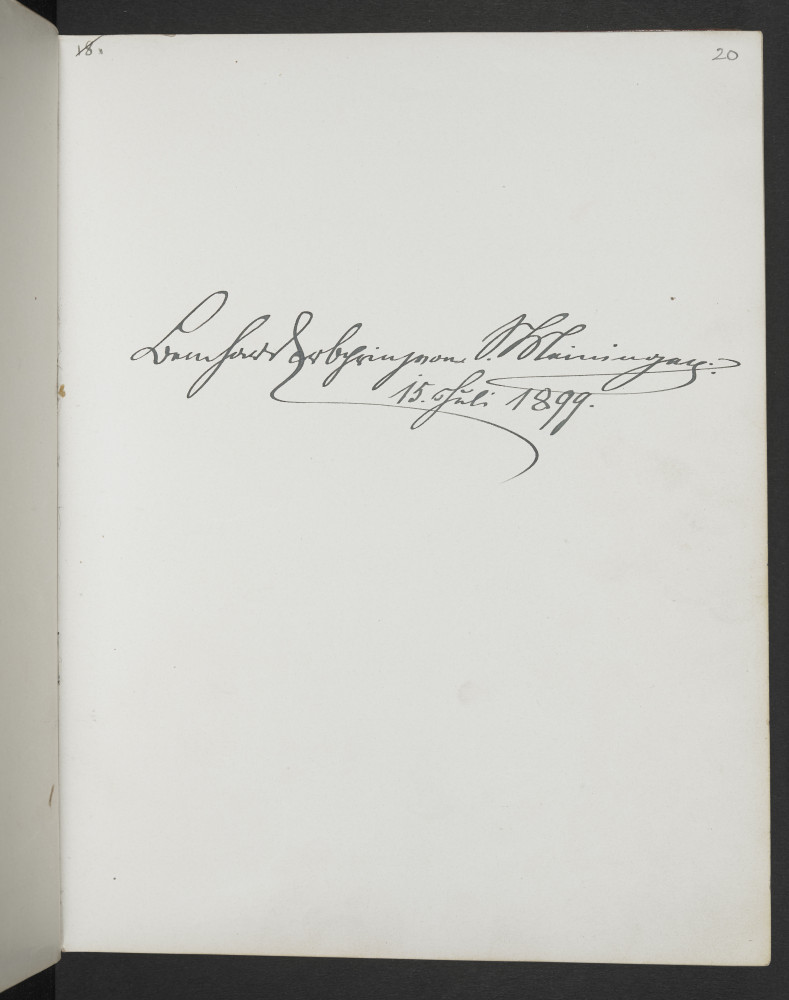 18.
20
Bernhard Erbprinz von S. Meiningen.
15. Juli 1899.